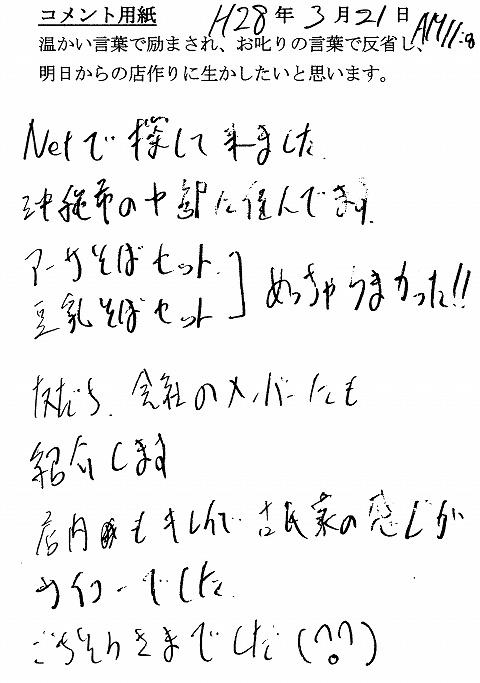 コメント用紙 H28年3月21日 AM11:8
温かい言葉で励まされ、お叱りの言葉で反省し、
明日からの店作りに生かしたいと思います。
Netで探して来ました。
沖縄市の中部に住んでます。
アーサそばセット
豆乳そばセット
めっちゃうまかった!!
友だち、会社のメンバーにも
紹介します
店内もキレイで古民家の感じが
サイコーでした。
ごちそうさまでした(^o^)